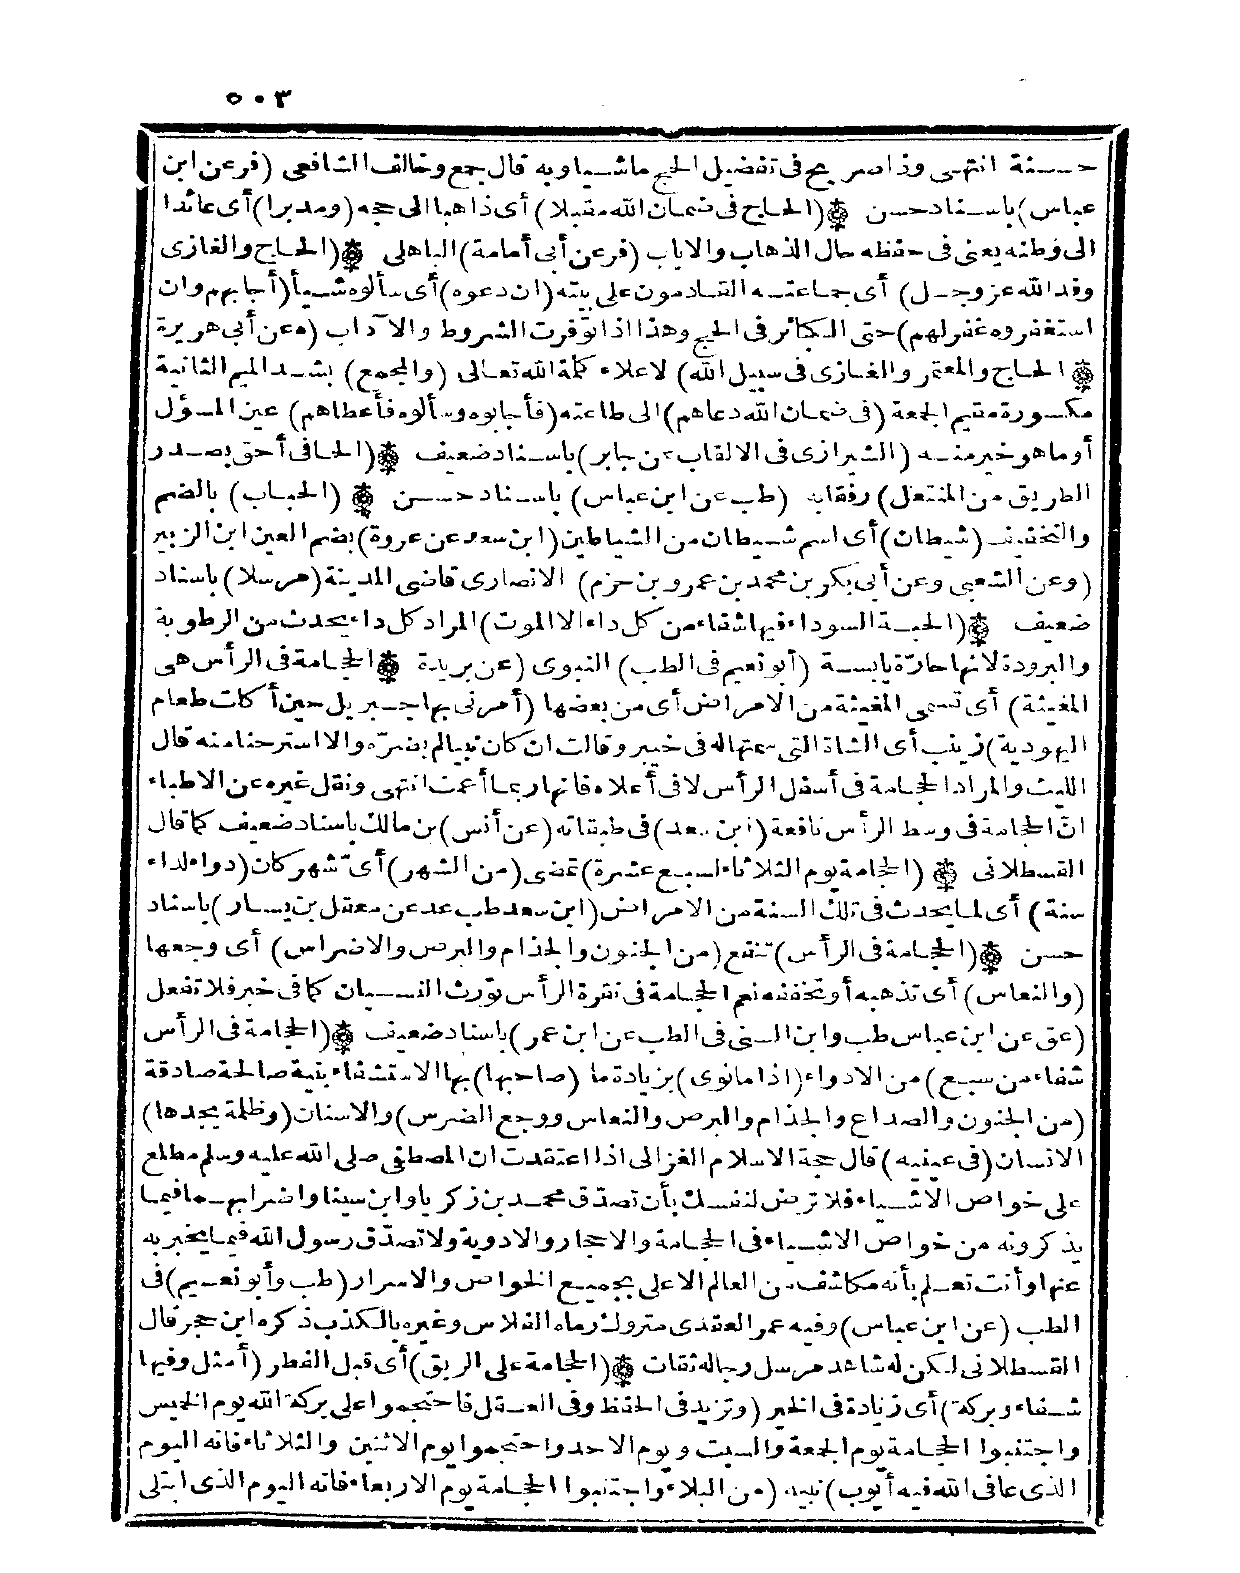 ٥٠٣
حسنة انتهى وذا صريح فى تفضيل الحج ماشيا وبه قال جمع وخالف الشافعى (فر عن ابن
عباس) باسناد حسن ۞ (الحاج فى ضمان الله مقبلا) أى ذاهبا الى حجه (ومدبرا) أى عائدا
الى وطنه يعنى فى حفظه حال الذهاب والاياب (فر عن أبى أمامة) الباهلى ۞ (الحاج والغازى
وفد الله عز وجل) أى جماعته القادمون على بيته (ان دعوه) أى سألوه شيأ (أجابهم وان
استغفروه غفر لهم) حتى الكبائر فى الحج وهذا اذا توفرت الشروط والآداب (ه عن أبى هريرة
۞ الحاج والمعتمر والغازى فى سبيل الله) لاعلاء كلمة الله تعالى (والمجمع) بشد الميم الثانية
مكسورة مقيم الجمعة (فى ضمان الله دعاهم) الى طاعته (فأجابوه وسألوه فأعطاهم) عين المسؤل
أو ما هو خير منه (الشيرازى فى الالقاب عن جابر) باسناد ضعيف ۞ (الحافى أحق بصدر
الطريق من المنتعل) رفقا به (طب عن ابن عباس) باسناد حسن ۞ (الحباب) بالضم
والتخفيف (شيطان) أى اسم شيطان من الشياطين (ابن سعد عن عروة) بضم العين ابن الزبير
(وعن الشعبى وعن أبى بكر بن محمد بن عمرو بن حزم) الانصارى قاضى المدينة (مرسلا) باسناد
ضعيف ۞ (الحبة السوداء فيها شفاء من كل داء الا الموت) المراد كل داء يحدث من الرطوبة
والبرودة لانها حارّة يابسة (أبو نعيم فى الطب) النبوى (عن بريدة ۞ الحجامة فى الرأس هى
المغيثة) أى تسمى المغيثة من الامراض أى من بعضها (أمرنى بها جبريل حين أكلت طعام
اليهودية) زينب أى الشاة التى سمتها له فى خيبر وقالت ان كان نبيا لم يضرّه والا استرحنا منه قال
الليث والمراد الحجامة فى أسفل الرأس لا فى أعلاه فانها ربما أعمت انتهى ونقل غيره عن الاطباء
انّ الحجامة فى وسط الرأس نافعة (ابن سعد) فى طبقاته (عن أنس) بن مالك باسناد ضعيف كما قال
القسطلانى ۞ (الحجامة يوم الثلاثاء لسبع عشرة) تمضى (من الشهر) أى شهر كان (دواء لداء
سنة) أى لما يحدث فى تلك السنة من الامراض (ابن سعد طب عد عن معقل بن يسار) باسناد
حسن ۞ (الحجامة فى الرأس) تنفع (من الجنون والجذام والبرص والاضراس) أى وجعها
(والنعاس) أى تذهبه أو تخففه نعم الحجامة فى نقرة الرأس تورث النسيان كما فى خبر فلا تفعل
(عق عن ابن عباس طب وابن السنى فى الطب عن ابن عمر) باسناد ضعيف ۞ (الحجامة فى الرأس
شفاء من سبع) من الادواء (اذا ما نوى) بزيادة ما (صاحبها) بها الاستشفاء بنية صالحة صادقة
(من الجنون والصداع والجذام والبرص والنعاس ووجع الضرس) والاسنان (وظلمة يجدها)
الانسان (فى عينيه) قال حجة الاسلام الغزالى اذا اعتقدت ان المصطفى صلى الله عليه وسلم مطلع
على خواص الاشياء فلا ترض لنفسك بأن تصدّق محمد بن زكريا وابن سينا واضرابهما فيما
يذكرونه من خواص الاشياء فى الحجامة والاحجار والادوية ولا تصدّق رسول الله فيما يخبر به
عنها وأنت تعلم بأنه مكاشف من العالم الاعلى بجميع الخواص والاسرار (طب وأبو نعيم) فى
الطب (عن ابن عباس) وفيه عمر العقدى متروك رماه الفلاس وغيره بالكذب ذكره ابن حجر قال
القسطلانى لكن له شاهد مرسل رجاله ثقات ۞ (الحجامة على الريق) أى قبل الفطر (أمثل وفيها
شفاء وبركة) أى زيادة فى الخير (وتزيد فى الحفظ وفى العقل فاحتجموا على بركة الله يوم الخميس
واجتنبوا الحجامة يوم الجمعة والسبت ويوم الاحد واحتجموا يوم الاثنين والثلاثاء فانه اليوم
الذى عافى الله فيه أيوب) نبيه (من البلاء واجتنبوا الحجامة يوم الاربعاء فانه اليوم الذى ابتلى